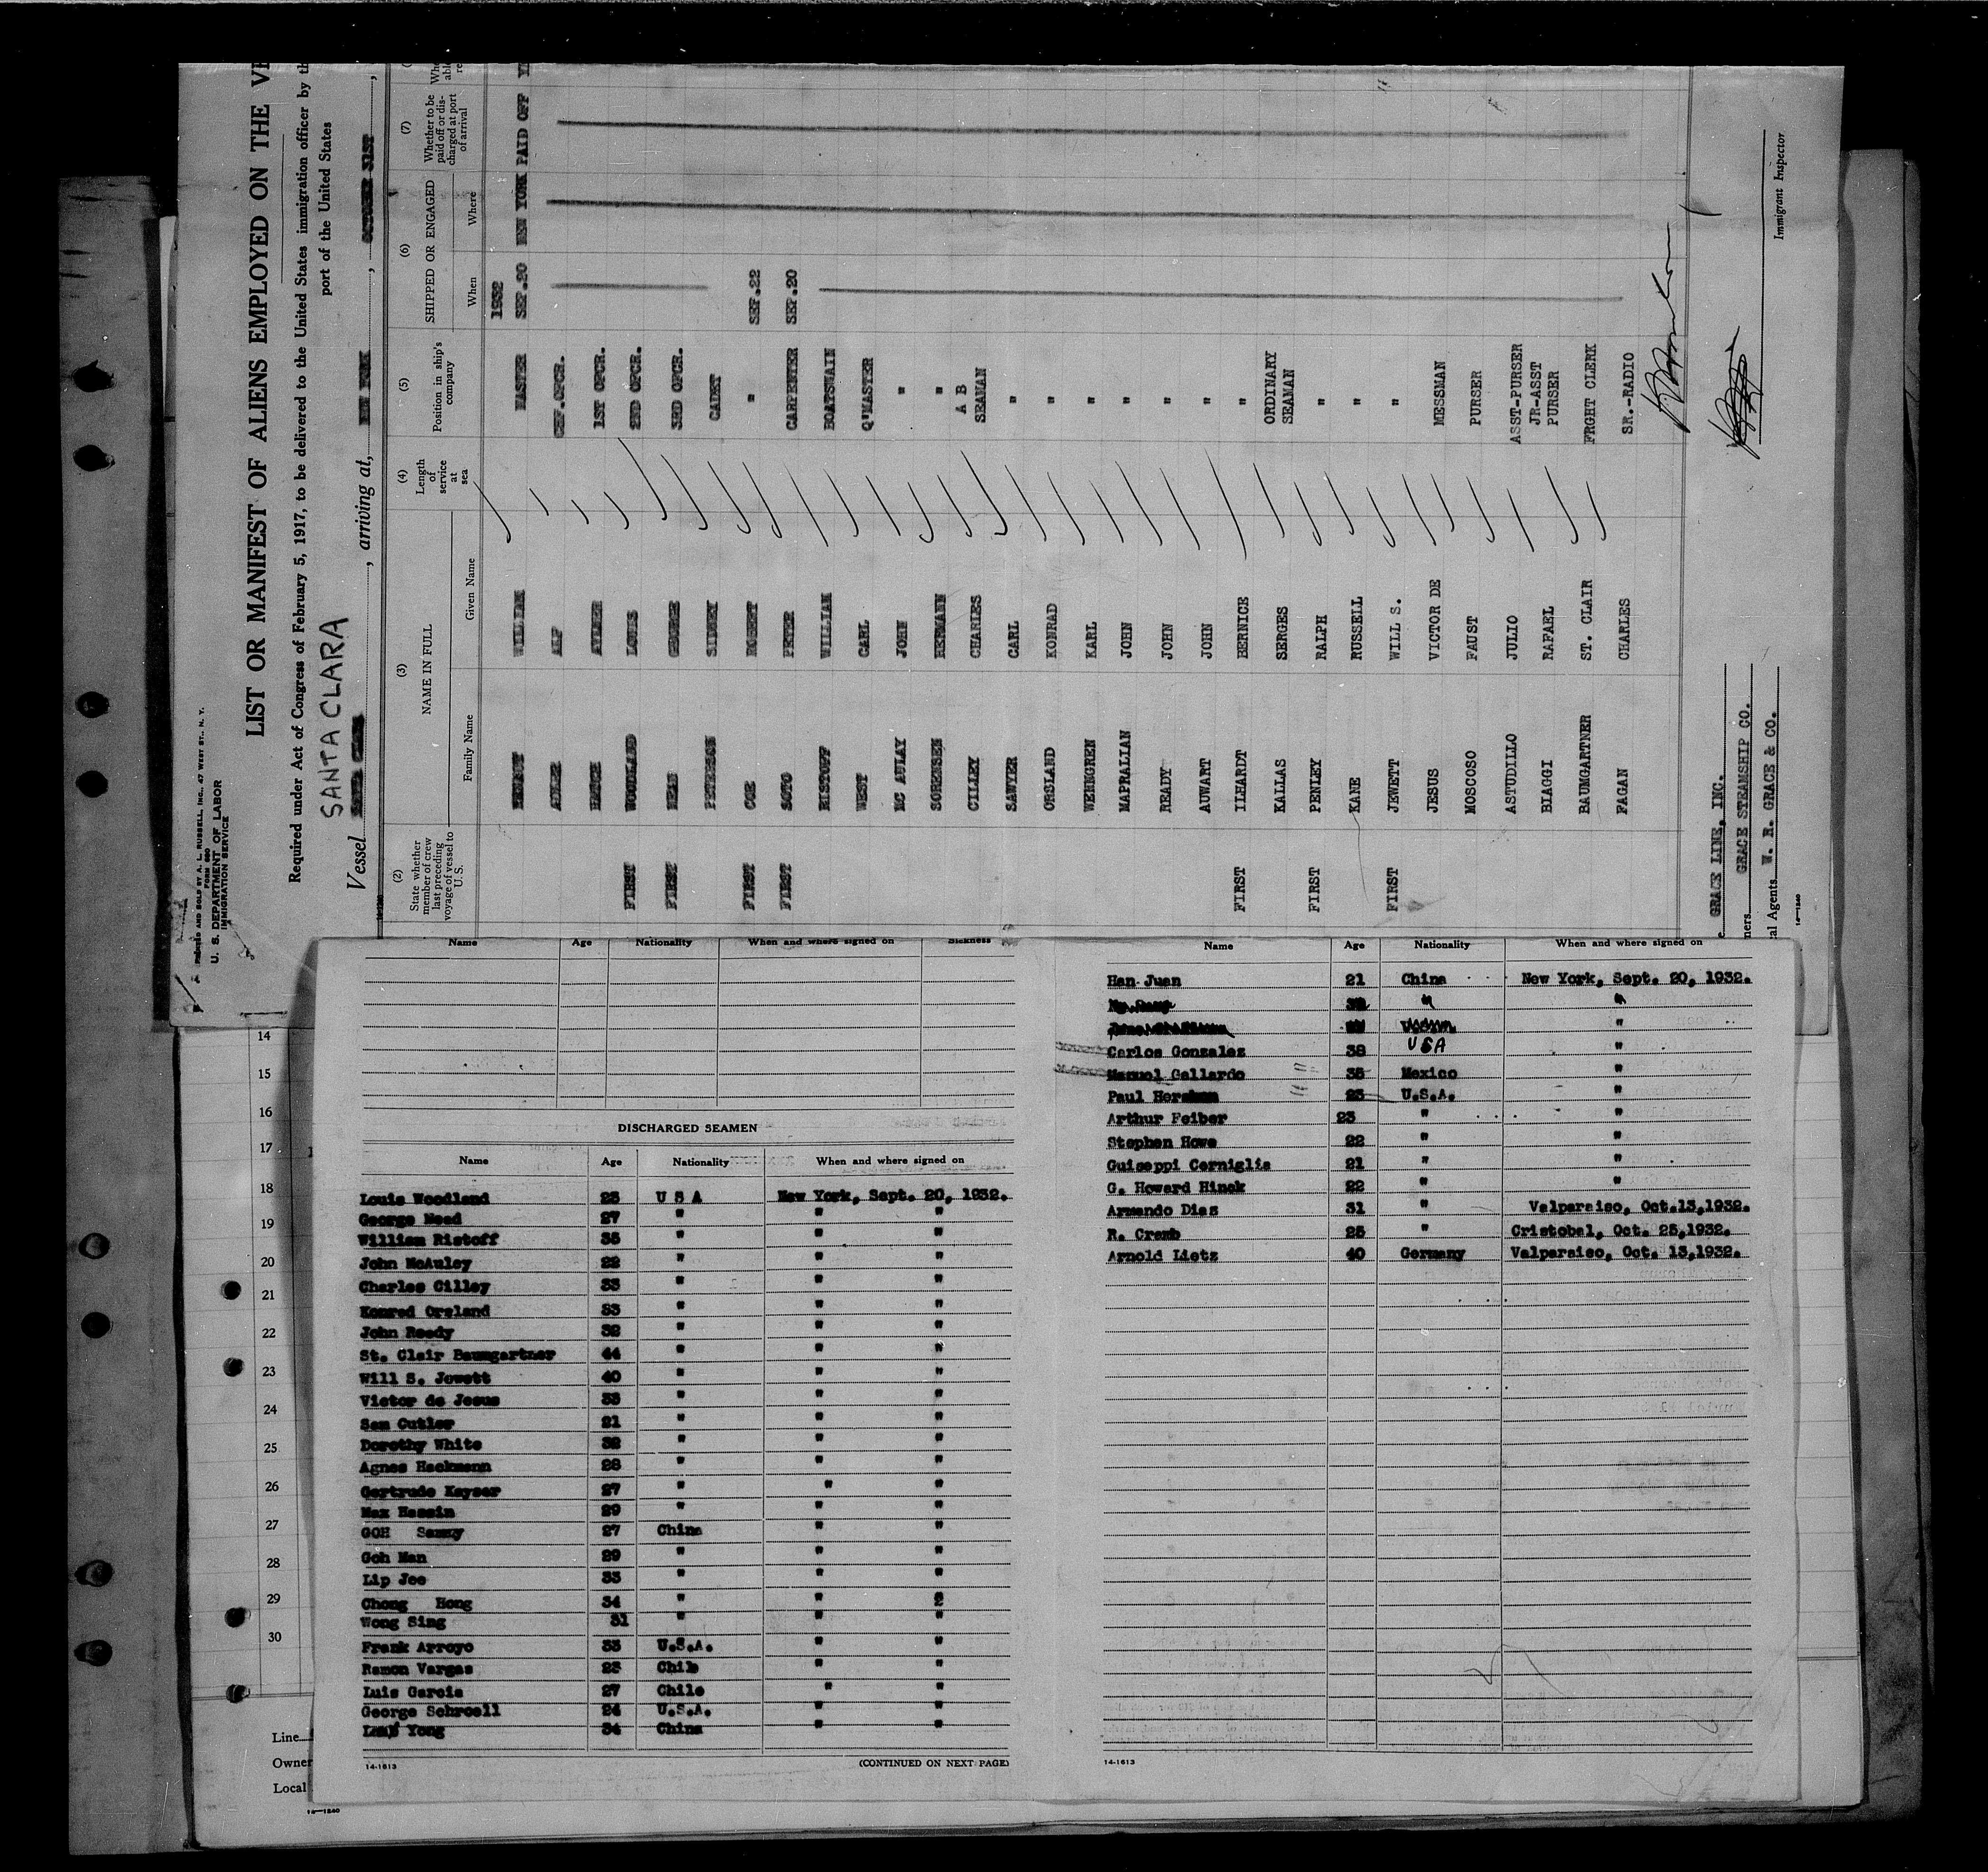 PRINTED AND SOLD BY A. L. RUSSELL, INC., 47 WEST ST., N. Y.
FORM 680
U. S. DEPARTMENT OF LABOR
IMMIGRATION SERVICE
LIST OR MANIFEST OF ALIENS EMPLOYED ON THE
Required under Act of Congress of February 5, 1917, to be delivered to the United States immigration officer by
port of the United States
SANTA CLARA
Vessel SANTA CLARA, arriving at, NEW YORK, OCTOBER 31ST,
(2) State whether member of crew last preceding voyage of vessel to U. S.
(3) NAME IN FULL
Family Name Given Name
(4) Length of service at sea
(5) Position in ship's company
(6) SHIPPED OR ENGAGED
When Where
(7) Whether to be paid off or discharged at port of arrival
1932
WILLIAM MASTER SEP.20 NEW YORK PAID OFF
ADLER ALF CHF.OFCR.
HATCH 1ST OFCR.
FIRST WOODLAND LOUIS 2ND OFCR.
FIRST MEAD GEORGE 3RD OFCR.
PETERSON SIDNEY CADET
FIRST COE ROBERT " SEP.22
FIRST SOTO PETER CARPENTER SEP.20
RISTOFF WILLIAM BOATSWAIN
WEST CARL Q'MASTER
MC AULAY JOHN "
SORENSEN HERMANN "
CILLEY CHARLES A B SEAMAN
SAWYER CARL "
ORSLAND KONRAD "
WENNGREN KARL "
MAPRALIAN JOHN "
READY JOHN "
AUWART JOHN "
FIRST ILHARDT BERNICE "
KALLAS SERGES ORDINARY SEAMAN
FIRST PENLEY RALPH "
KANE RUSSELL "
FIRST JEWETT WILL S. "
JESUS VICTOR DE MESSMAN
MOSCOSO FAUST PURSER
ASTUDILLO JULIO ASST-PURSER
BIAGGI RAFAEL JR-ASST PURSER
BAUMGARTNER ST. CLAIR FRGHT CLERK
FAGAN CHARLES SR.-RADIO
GRACE LINE, INC.
ners GRACE STEAMSHIP CO.
al Agents W. R. GRACE & CO.
14-1240
Immigrant Inspector
Name Age Nationality When and where signed on Sickness
DISCHARGED SEAMEN
Name Age Nationality When and where signed on
Louis Woodland 23 U S A New York, Sept. 20, 1932.
George Mead 27 " " "
William Ristoff 35 " " "
John McAuley 22 " " "
Charles Cilley 33 " " "
Konred Orsland 33 " " "
John Ready 32 " " "
St. Clair Baumgartner 44 " " "
Will S. Jewett 40 " " "
Victor de Jesus 33 " " "
Sam Cutler 21 " " "
Dorothy White 32 " " "
Agnes Hackmann 28 " " "
Gertrude Kayser 27 " " "
Max Hassin 29 " " "
GOH Sammy 27 China " "
Goh Man 29 " " "
Lip Joe 33 " " "
Chong Hong 34 " " 2
Wong Sing 31 " " "
Frank Arroyo 33 U.S.A. " "
Ramon Vargas 23 Chile " "
Luis Garcia 27 Chile " "
George Schroell 24 U.S.A. " "
Yong 34 China " "
14-1613
(CONTINUED ON NEXT PAGE)
Name Age Nationality When and where signed on
Han Juan 21 China New York, Sept. 20, 1932.
" "
"
Carlos Gonzalez 38 USA "
Manuel Gallardo 35 Mexico "
Paul 23 U.S.A. "
Arthur Feiber 23 " "
Stephen Howe 22 " "
Guiseppi Cerniglia 21 " "
G. Howard Hinck 22 " "
Armando Dias 31 " Valparaiso, Oct.13,1932.
R. Cramb 25 " Cristobal, Oct. 25,1932.
Arnold Lietz 40 Germany Valparaiso, Oct. 13,1932.
14-1613
14
15
16
17
18
19
20
21
22
23
24
25
26
27
28
29
30
Line
Owner
Local
14-1240